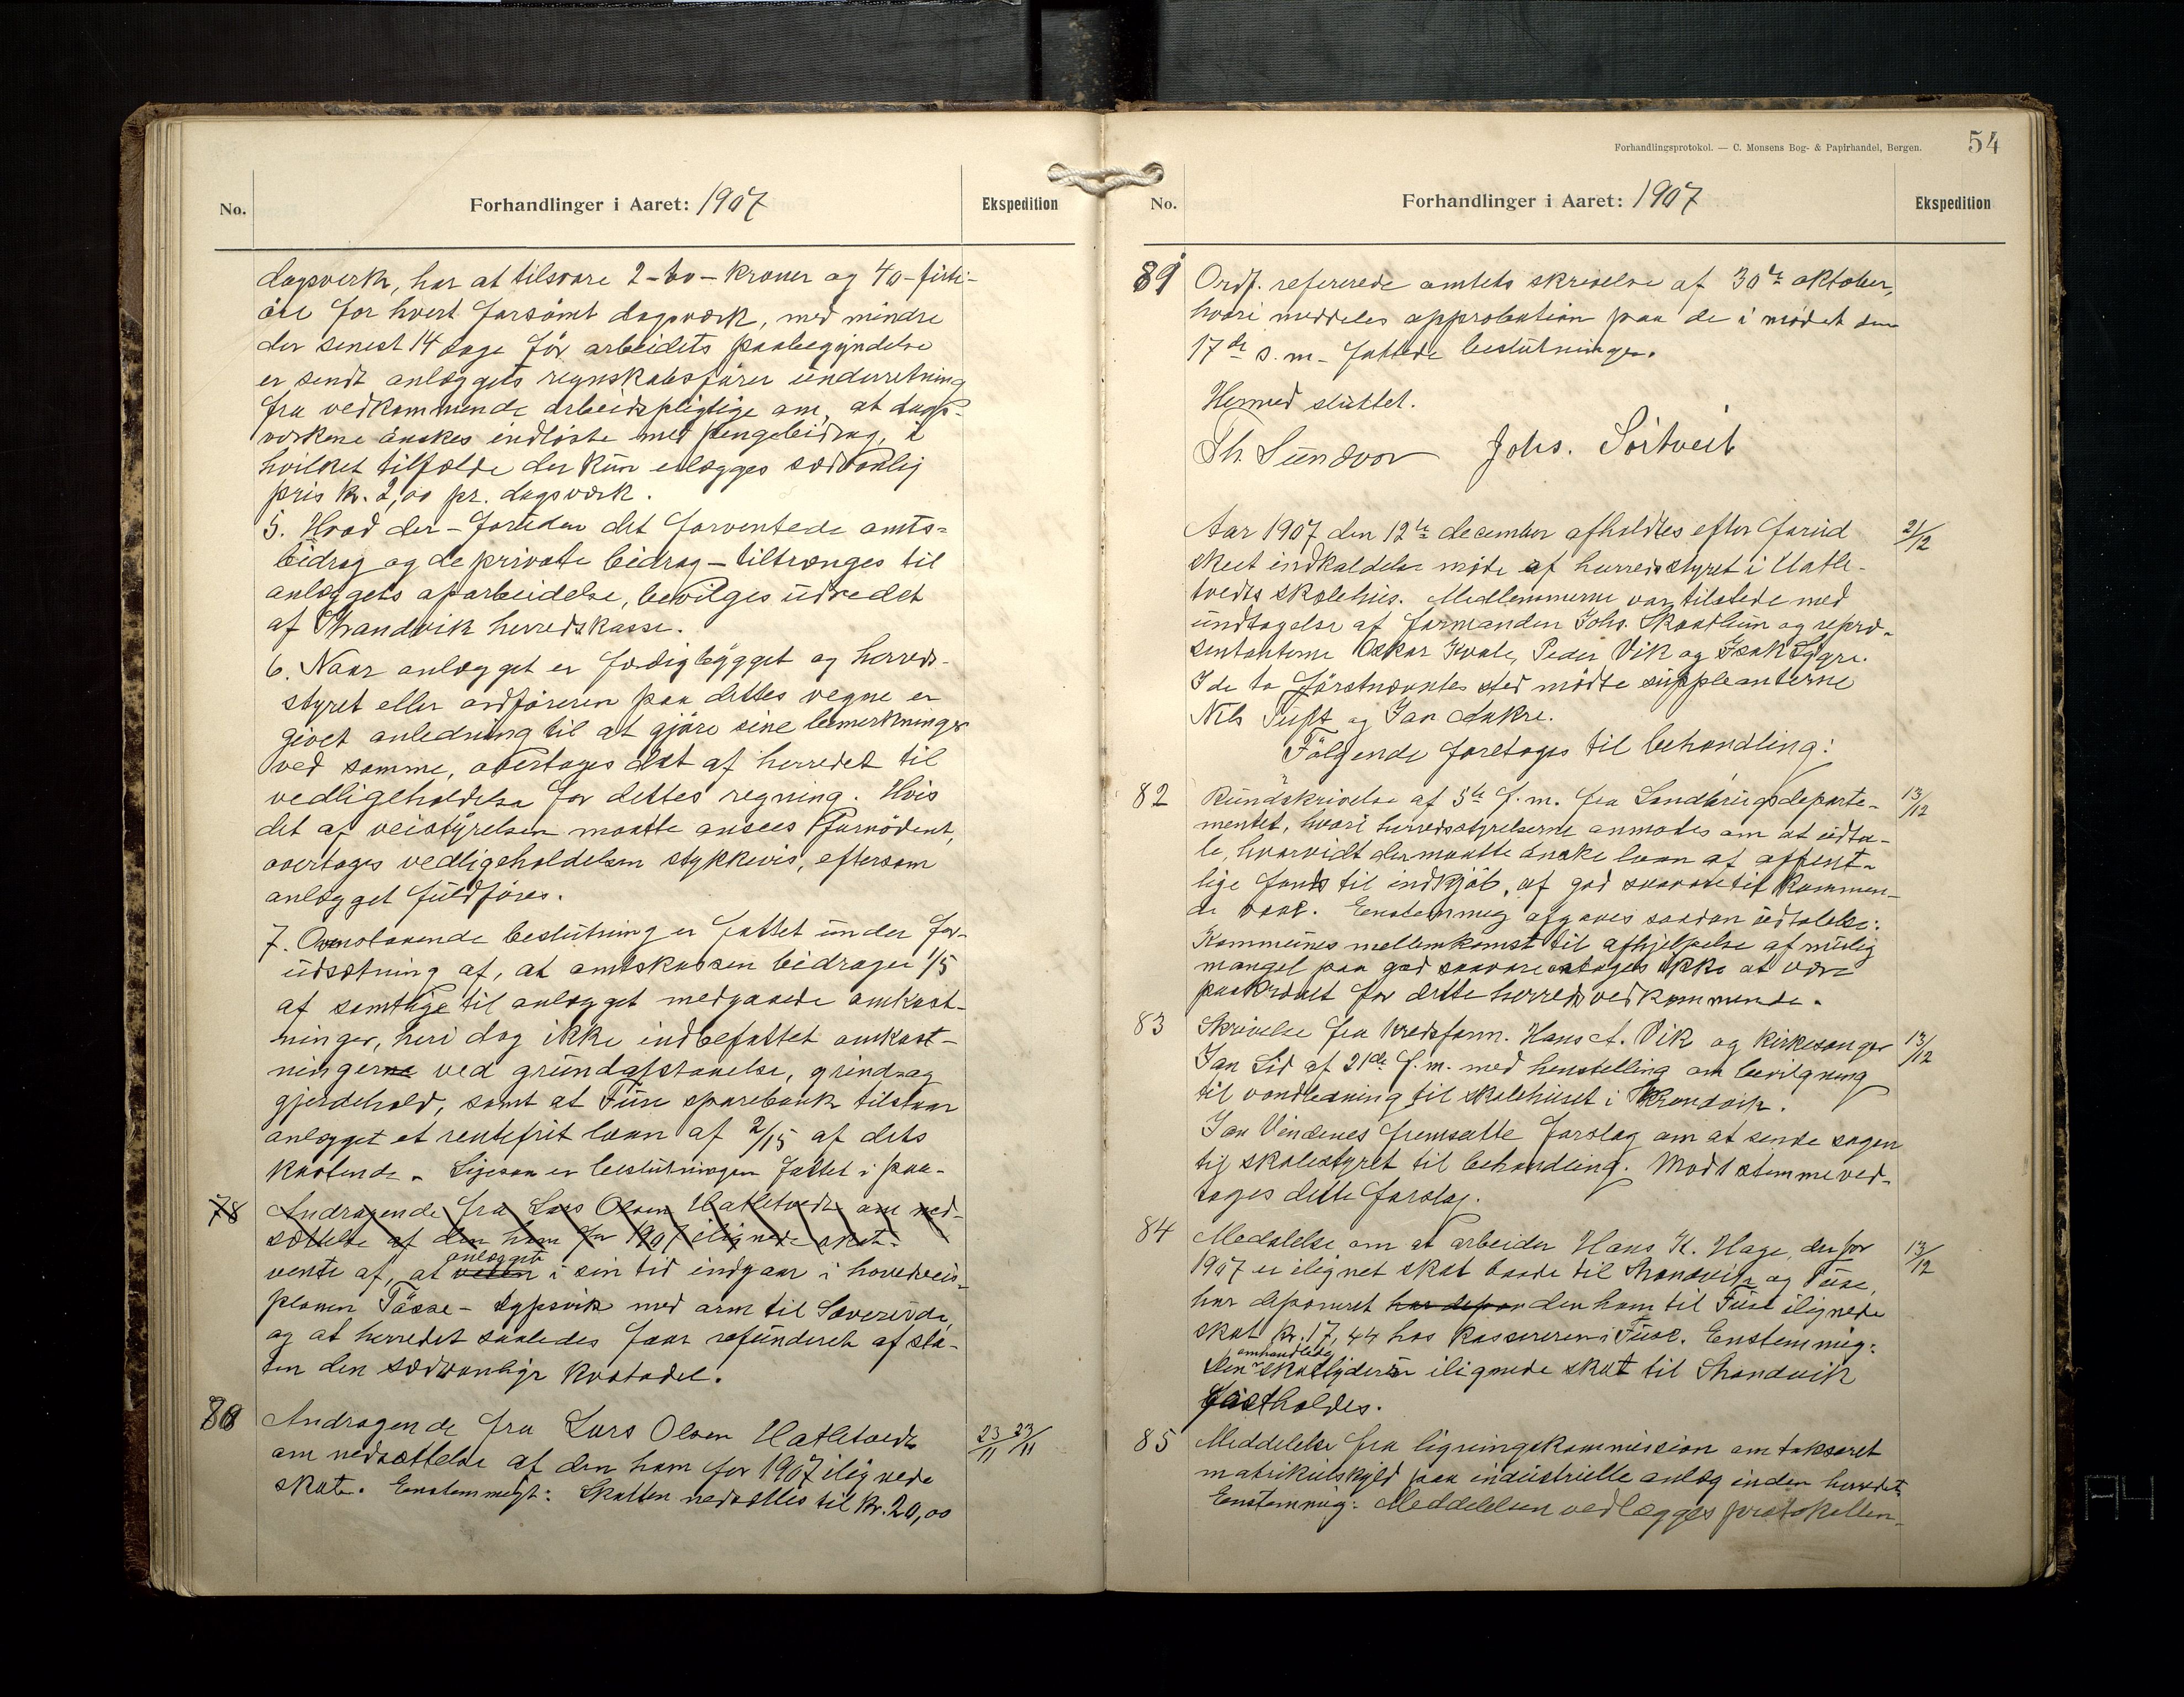 No.
Forhandlinger i Aaret: 1907
Ekspedition
dagsverk, har at tilsvare 2-to-kroner og 40-firti-
øre for hvert forsømt dagsverk, med mindre
der senest 14 dage før arbeidets paabegyndelse
er sendt anlæggets regnskabsfører underretning
fra vedkommende arbeidspligtige om, at dags-
verkene ønskes indløste med pengebidrag, i
hvilket tilfælde der kun erlægges sædvanlig
pris kr. 2,00 pr. dagsværk.
5. Hvad der - foruden det forventede amts-
bidrag og de private bidrag - tiltrænges til
anlæggets oparbeidelse, bevilges udredet
af Strandvik herredskasse.
6. Naar anlægget er færdigbygget og herreds-
styret eller ordføreren paa dettes vegne er
givet anledning til at gjøre sine bemerkninger
ved samme, overtages det af herredet til
vedligeholdelse for dettes regning. Hvis
det af veistyrelsen maatte ansees fornødent,
overtages vedligeholdelsen stykkevis, eftersom
anlægget fuldføres.
7. Ovenstaaende beslutning er fattet under for-
udsætning af, at amtskassen bidrager 1/5
af samtlige til anlægget medgaaede omkost-
ninger, heri dog ikke indbefattet omkost-
ningerne ved grundafstaaelse, grind og
gjerdehold, samt at Fuse sparebank tilstaar
anlægget et rentefrit laan af 2/15 af dets
kostende. Ligesom er beslutningen fattet i paa-
78 Andragende fra Lars Olsen Hatletvedt om ned-
sættelse af den ham for 1907 ilignede skat.
anlægget
vente af, at veien i sin tid indgaar i hovedveis-
planen Tøsse - Sypsvik med arm til Sævereide,
og at herredet saaledes faar refunderet af sta-
ten den sædvanlige kostadel.
80 Andragende fra Lars Olsen Hatletvedt 23/11 23/11
om nedsættelse af den ham for 1907 ilignede
skat. Enstemmigt: Skatten nedsættes til kr. 20,00
Forhandlingsprotokol. — C. Monsens Bog- & Papirhandel, Bergen.
54
No.
Forhandlinger i Aaret: 1907
Ekspedition
81 Ordf. refererede amtets skrivelse af 30te oktober,
hvori meddeles approbation paa de i mødet den
17de s.m. fattede beslutninger.
Hermed sluttet.
Th. Sundvor Johs. Sørtveit
Aar 1907 den 12te december afholdtes efter forud 21/12
skeet indkaldelse møde af herredsstyret i Hatle-
tvedts skolehus. Medlemmerne var tilstede med
undtagelse af formanden Johs. Skaathun og repræ-
sentanterne Oskar Hvale, Peder Vik og Isak Lygre.
I de to førstnævntes sted mødte suppleanterne
Nils Tuft og Jan Aakre.
Følgende foretoges til behandling:
82 Rundskrivelse af 5te f.m. fra Landbrugsdeparte- 13/12
mentet, hvori herredsstyrelserne anmodes om at udta-
le, hvorvidt der maatte ønske laan af offent-
lige fonds til indkjøb af god saavare til kommen-
de vaar. Enstemmig afgaves saadan udtalelse:
Kommunes mellemkomst til afhjelpelse af mulig
mangel paa god saavare antages ikke at være
paakrævet for dette herreds vedkommende.
83 Skrivelse fra kredsform. Hans A. Vik og kirkesanger 13/12
Jan Lid af 21de f.m. med henstilling om bevilgning
til vandledning til skolehuset i Strandvik.
Jan Vindenes fremsatte forslag om at sende sagen
til skolestyret til behandling. Mod 1 stemme ved-
toges dette forslag.
84 Meddelelse om at arbeider Hans K. Hage, der for 13/12
1907 er ilignet skat baade til Strandvik og Fuse,
har deponeret har depon den ham til Fuse ilignede
skat kr. 17,44 hos kassereren i Fuse. Enstemmig:
omhandlede
Den skatlyderen ilignede skat til Strandvik
fastholdes.
85 Meddelelse fra ligningskommission om takseret
matrikulskyld paa industrielle anlæg inden herredet.
Enstemmig: Meddelelsen vedlægges protokollen.